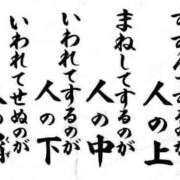 すすんでするのが
人の上
まねしてするのが
人の中
いわれてするのが
人の下
いわれてせぬのが
人の